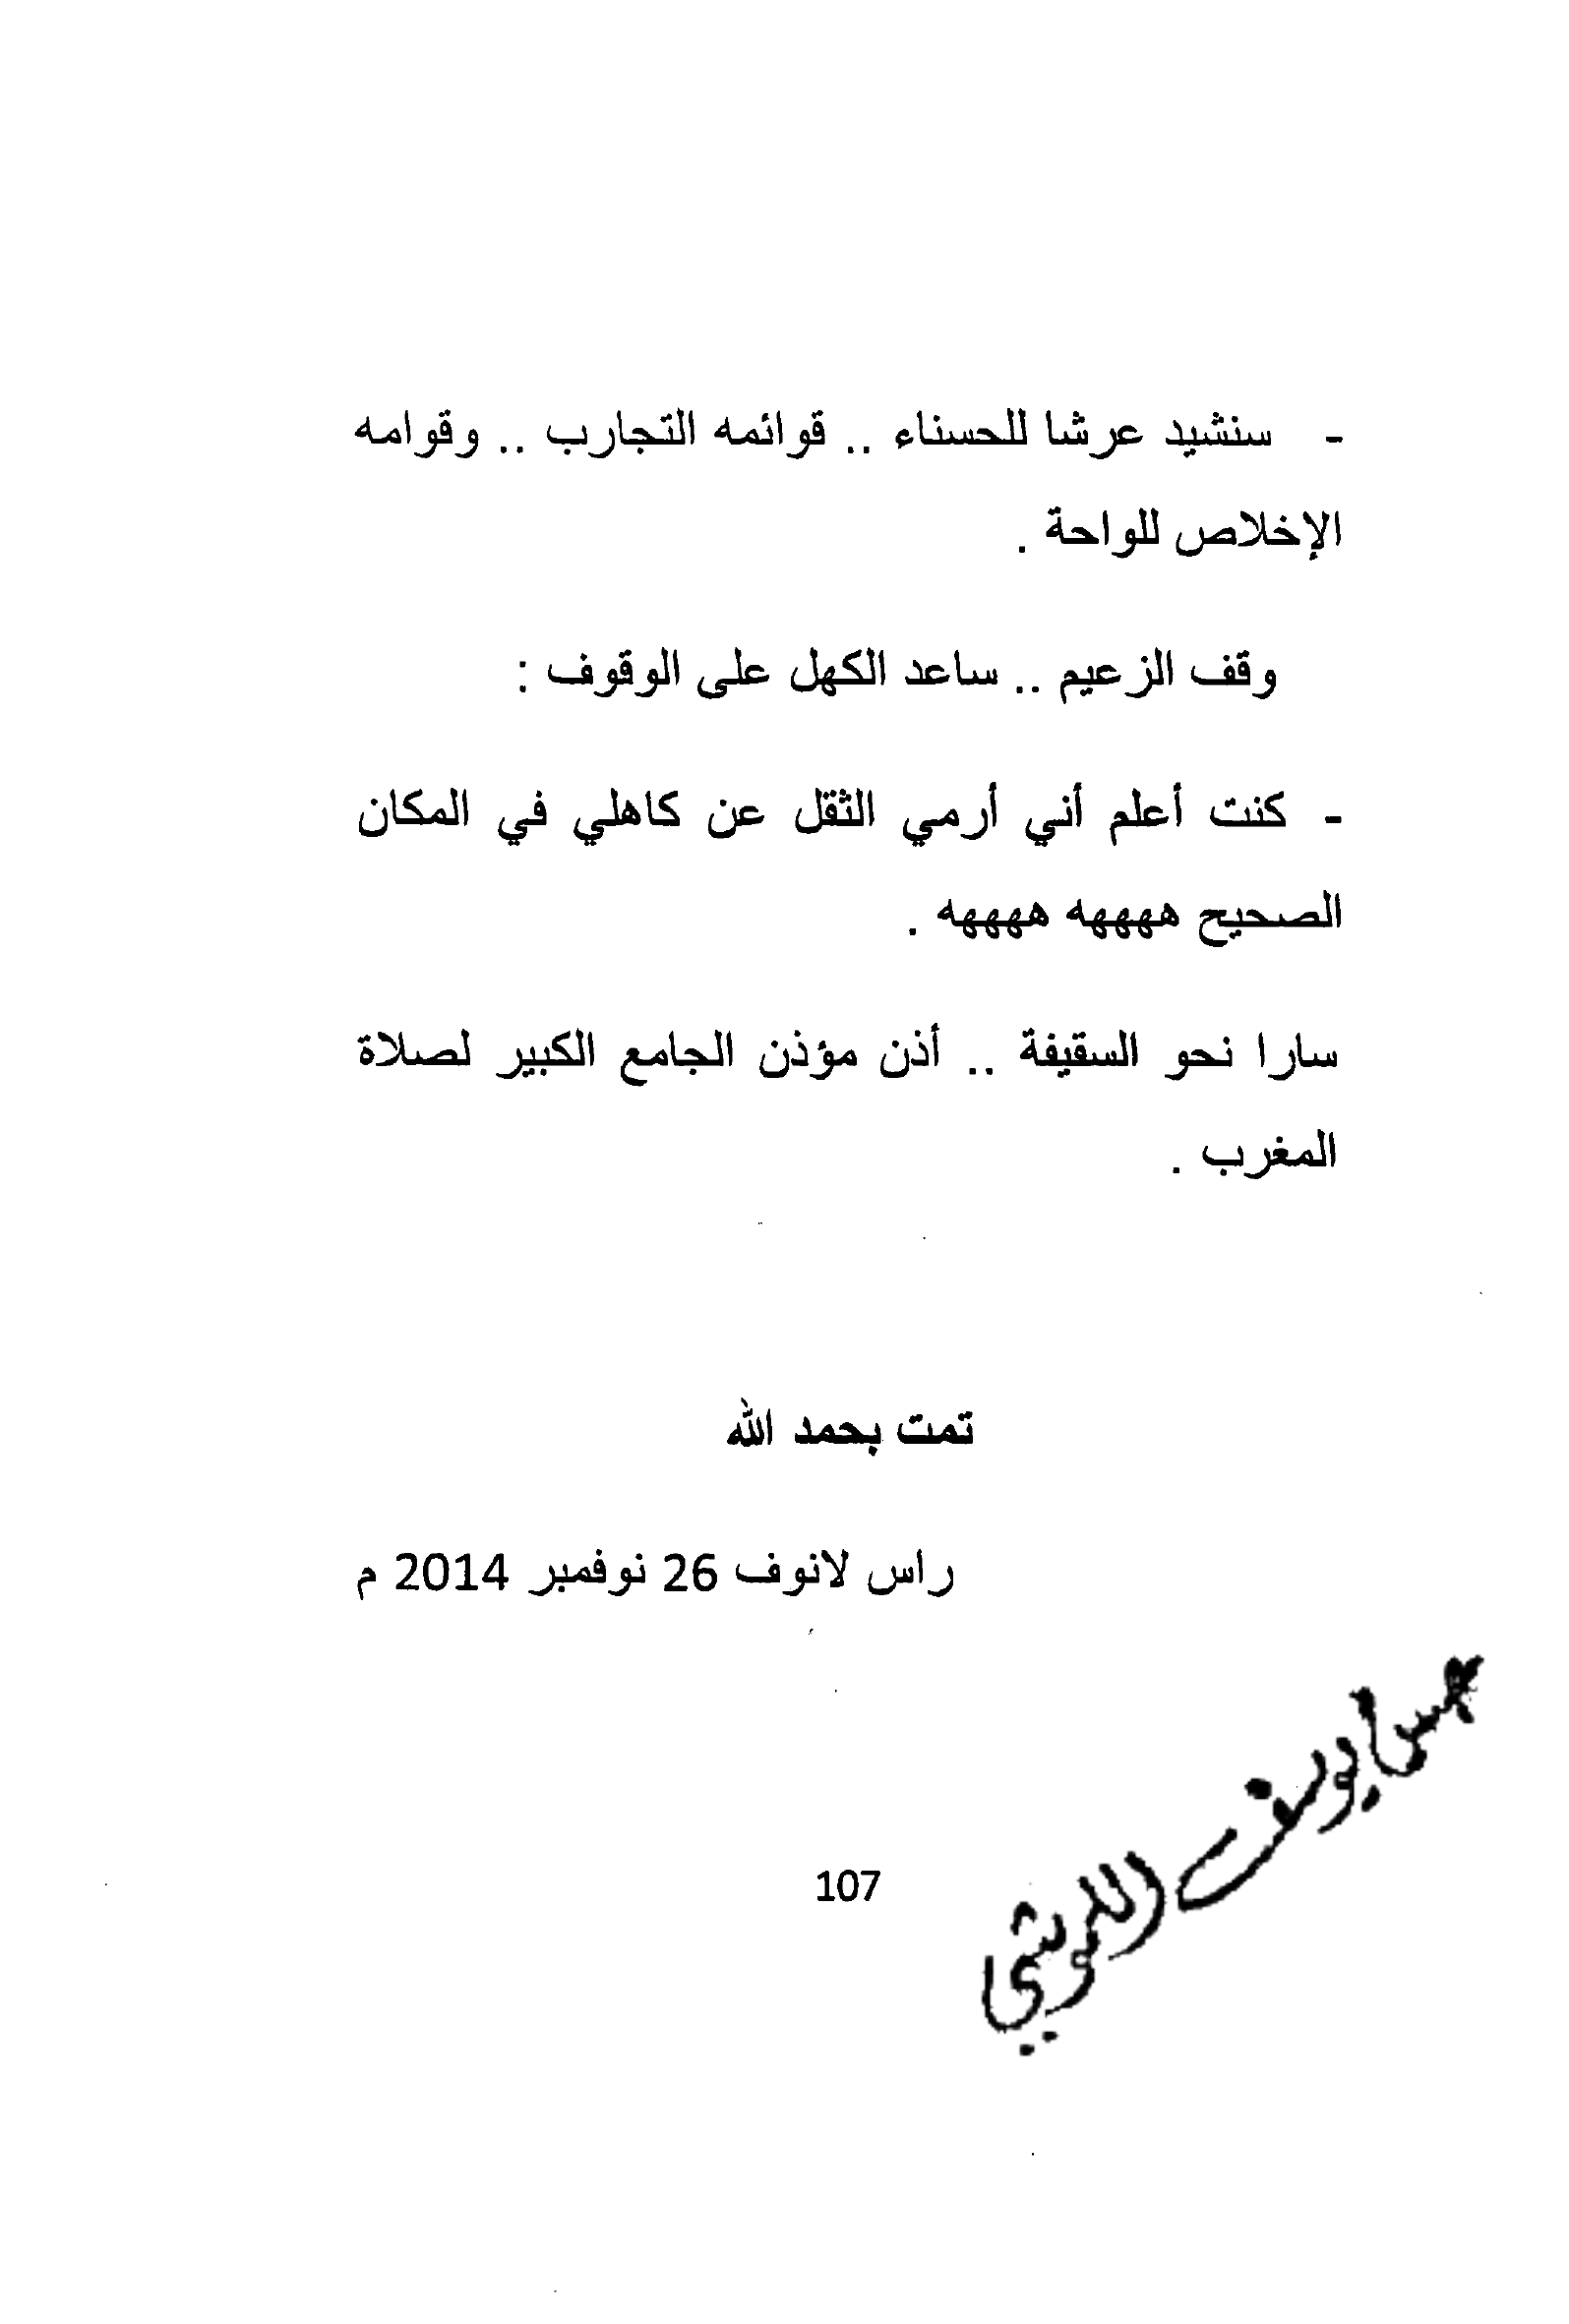 - سنشيد عرشا للحسناء .. قوائمه التجارب .. وقوامه
الإخلاص للواحة .
وقف الزعيم .. ساعد الكهل على الوقوف :
- كنت أعلم أني أرمي الثقل عن كاهلي في المكان
الصحيح ههههه ههههه .
سارا نحو السقيفة .. أذن مؤذن الجامع الكبير لصلاة
المغرب .
تمت بحمد الله
راس لانوف 26 نوفمبر 2014 م
يوسف
107